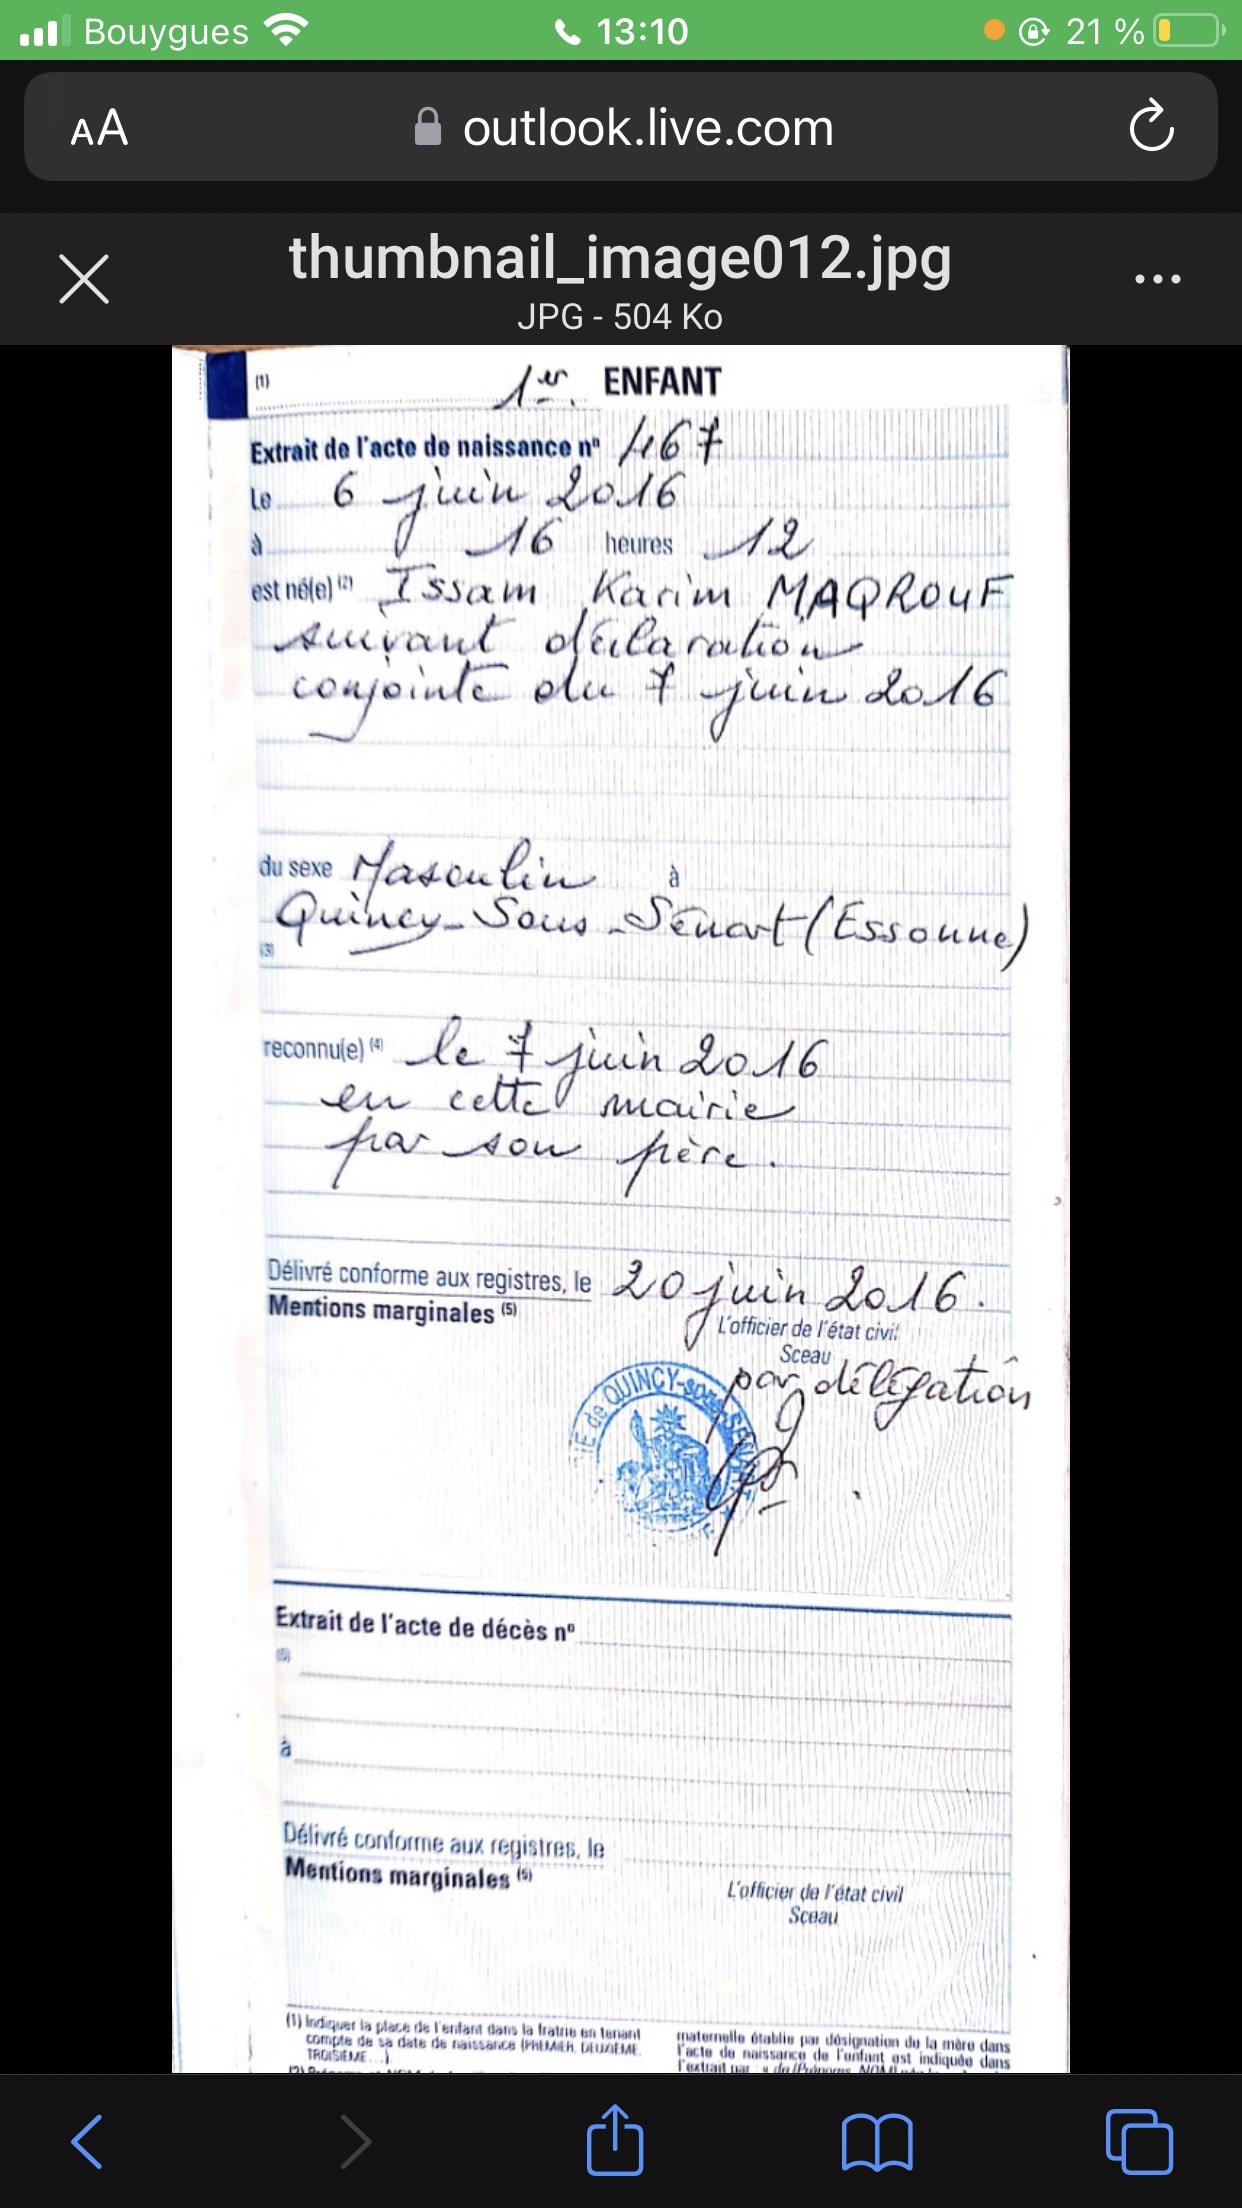 Bouygues 13:10 21 %
AA outlook.live.com
thumbnail_image012.jpg
JPG - 504 Ko
(1) 1er. ENFANT
Extrait de l'acte de naissance nº 467
Le 6 juin 2016
à 16 heures 12
est né(e) (2) Issam Karim MAQROUF
suivant déclaration
conjointe du 7 juin 2016
du sexe Masculin à
Quincy-Sous-Sénart (Essonne)
(3)
reconnu(e) (4) le 7 juin 2016
en cette mairie
par son père.
Délivré conforme aux registres, le 20 juin 2016.
Mentions marginales (5)
L'officier de l'état civil
Sceau
par délégation
IE de QUINCY-sous-SENART
Extrait de l'acte de décès nº
(6)
à
Délivré conforme aux registres, le
Mentions marginales (5)
L'officier de l'état civil
Sceau
(1) Indiquer la place de l'enfant dans la fratrie en tenant
compte de sa date de naissance (PREMIER, DEUXIÈME,
TROISIÈME...)
maternelle établie par désignation de la mère dans
l'acte de naissance de l'enfant est indiquée dans